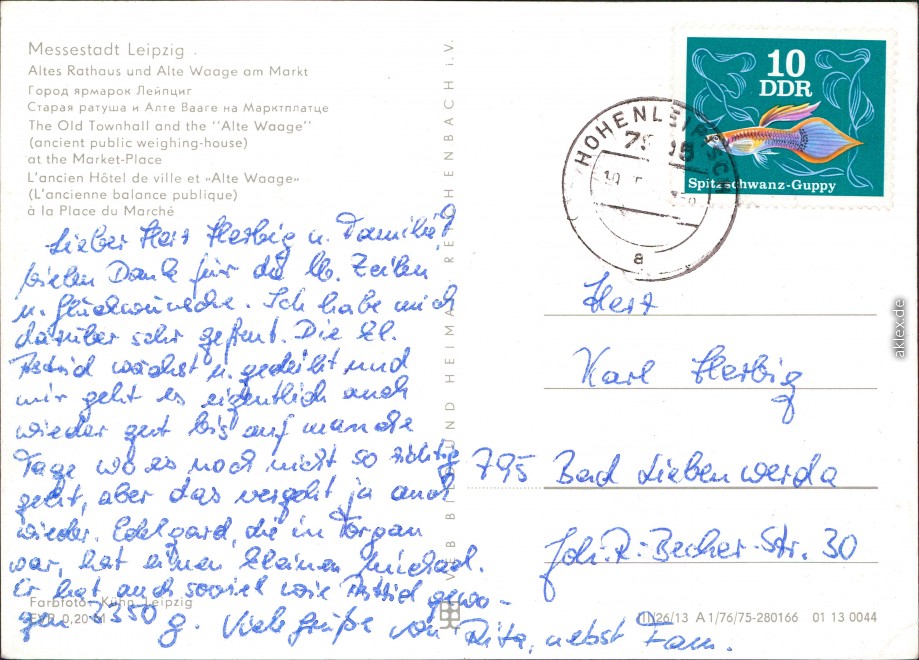 Messestadt Leipzig
Altes Rathaus und Alte Waage am Markt
Город ярмарок Лейпциг
Старая ратуша и Алте Вааге на Марктплатце
The Old Townhall and the "Alte Waage"
(ancient public weighing-house)
at the Market-Place
L'ancien Hôtel de ville et »Alte Waage«
(L'ancienne balance publique)
à la Place du Marché
Lieber Herr Herbig u. Familie!
Vielen Dank für die lb. Zeilen
u. Glückwünsche. Ich habe mich
darüber sehr gefreut. Die kl.
Astrid wächst u. gedeiht und
mir geht es eigentlich auch
wieder gut bis auf manche
Tage wo es noch nicht so richtig
geht, aber das vergeht ja auch
wieder. Edelgard, die in Torgau
war, hat einen kleinen Michael.
Er hat auch soviel wie Astrid gewo-
gen 3550 g. Viele Grüße von Rita, nebst Fam.
Farbfoto: Kühn, Leipzig
EVP 0,20 M
VEB BILD UND HEIMAT REICHENBACH I.V.
10
DDR
Spitzschwanz-Guppy
HOHENLEIPISCH
7905
a
Herr
Karl Herbig
795 Bad Liebenwerda
Joh.-R.-Becher-Str. 30
III/26/13 A 1/76/75-280166 01 13 0044
aklex.de